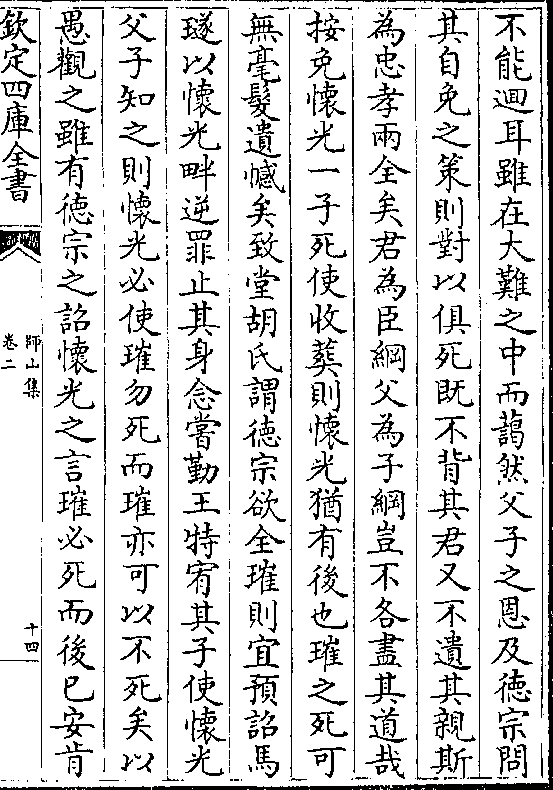 不能迴耳雖在大難之中而藹然父子之恩及徳宗問
其自免之策則對以俱死既不背其君又不遺其親斯
為忠孝兩全矣君為臣綱父為子綱豈不各盡其道哉
按免懷光一子死使收葬則懷光猶有後也璀之死可
無毫髮遺憾矣致堂胡氏謂徳宗欲全璀則宜預詔馬
璲以懷光畔逆罪止其身念嘗勤王特宥其子使懷光
父子知之則懷光必使璀勿死而璀亦可以不死矣以
愚觀之雖有徳宗之詔懷光之言璀必死而後已安肯
欽定四庫全書
師山集
卷二
十四